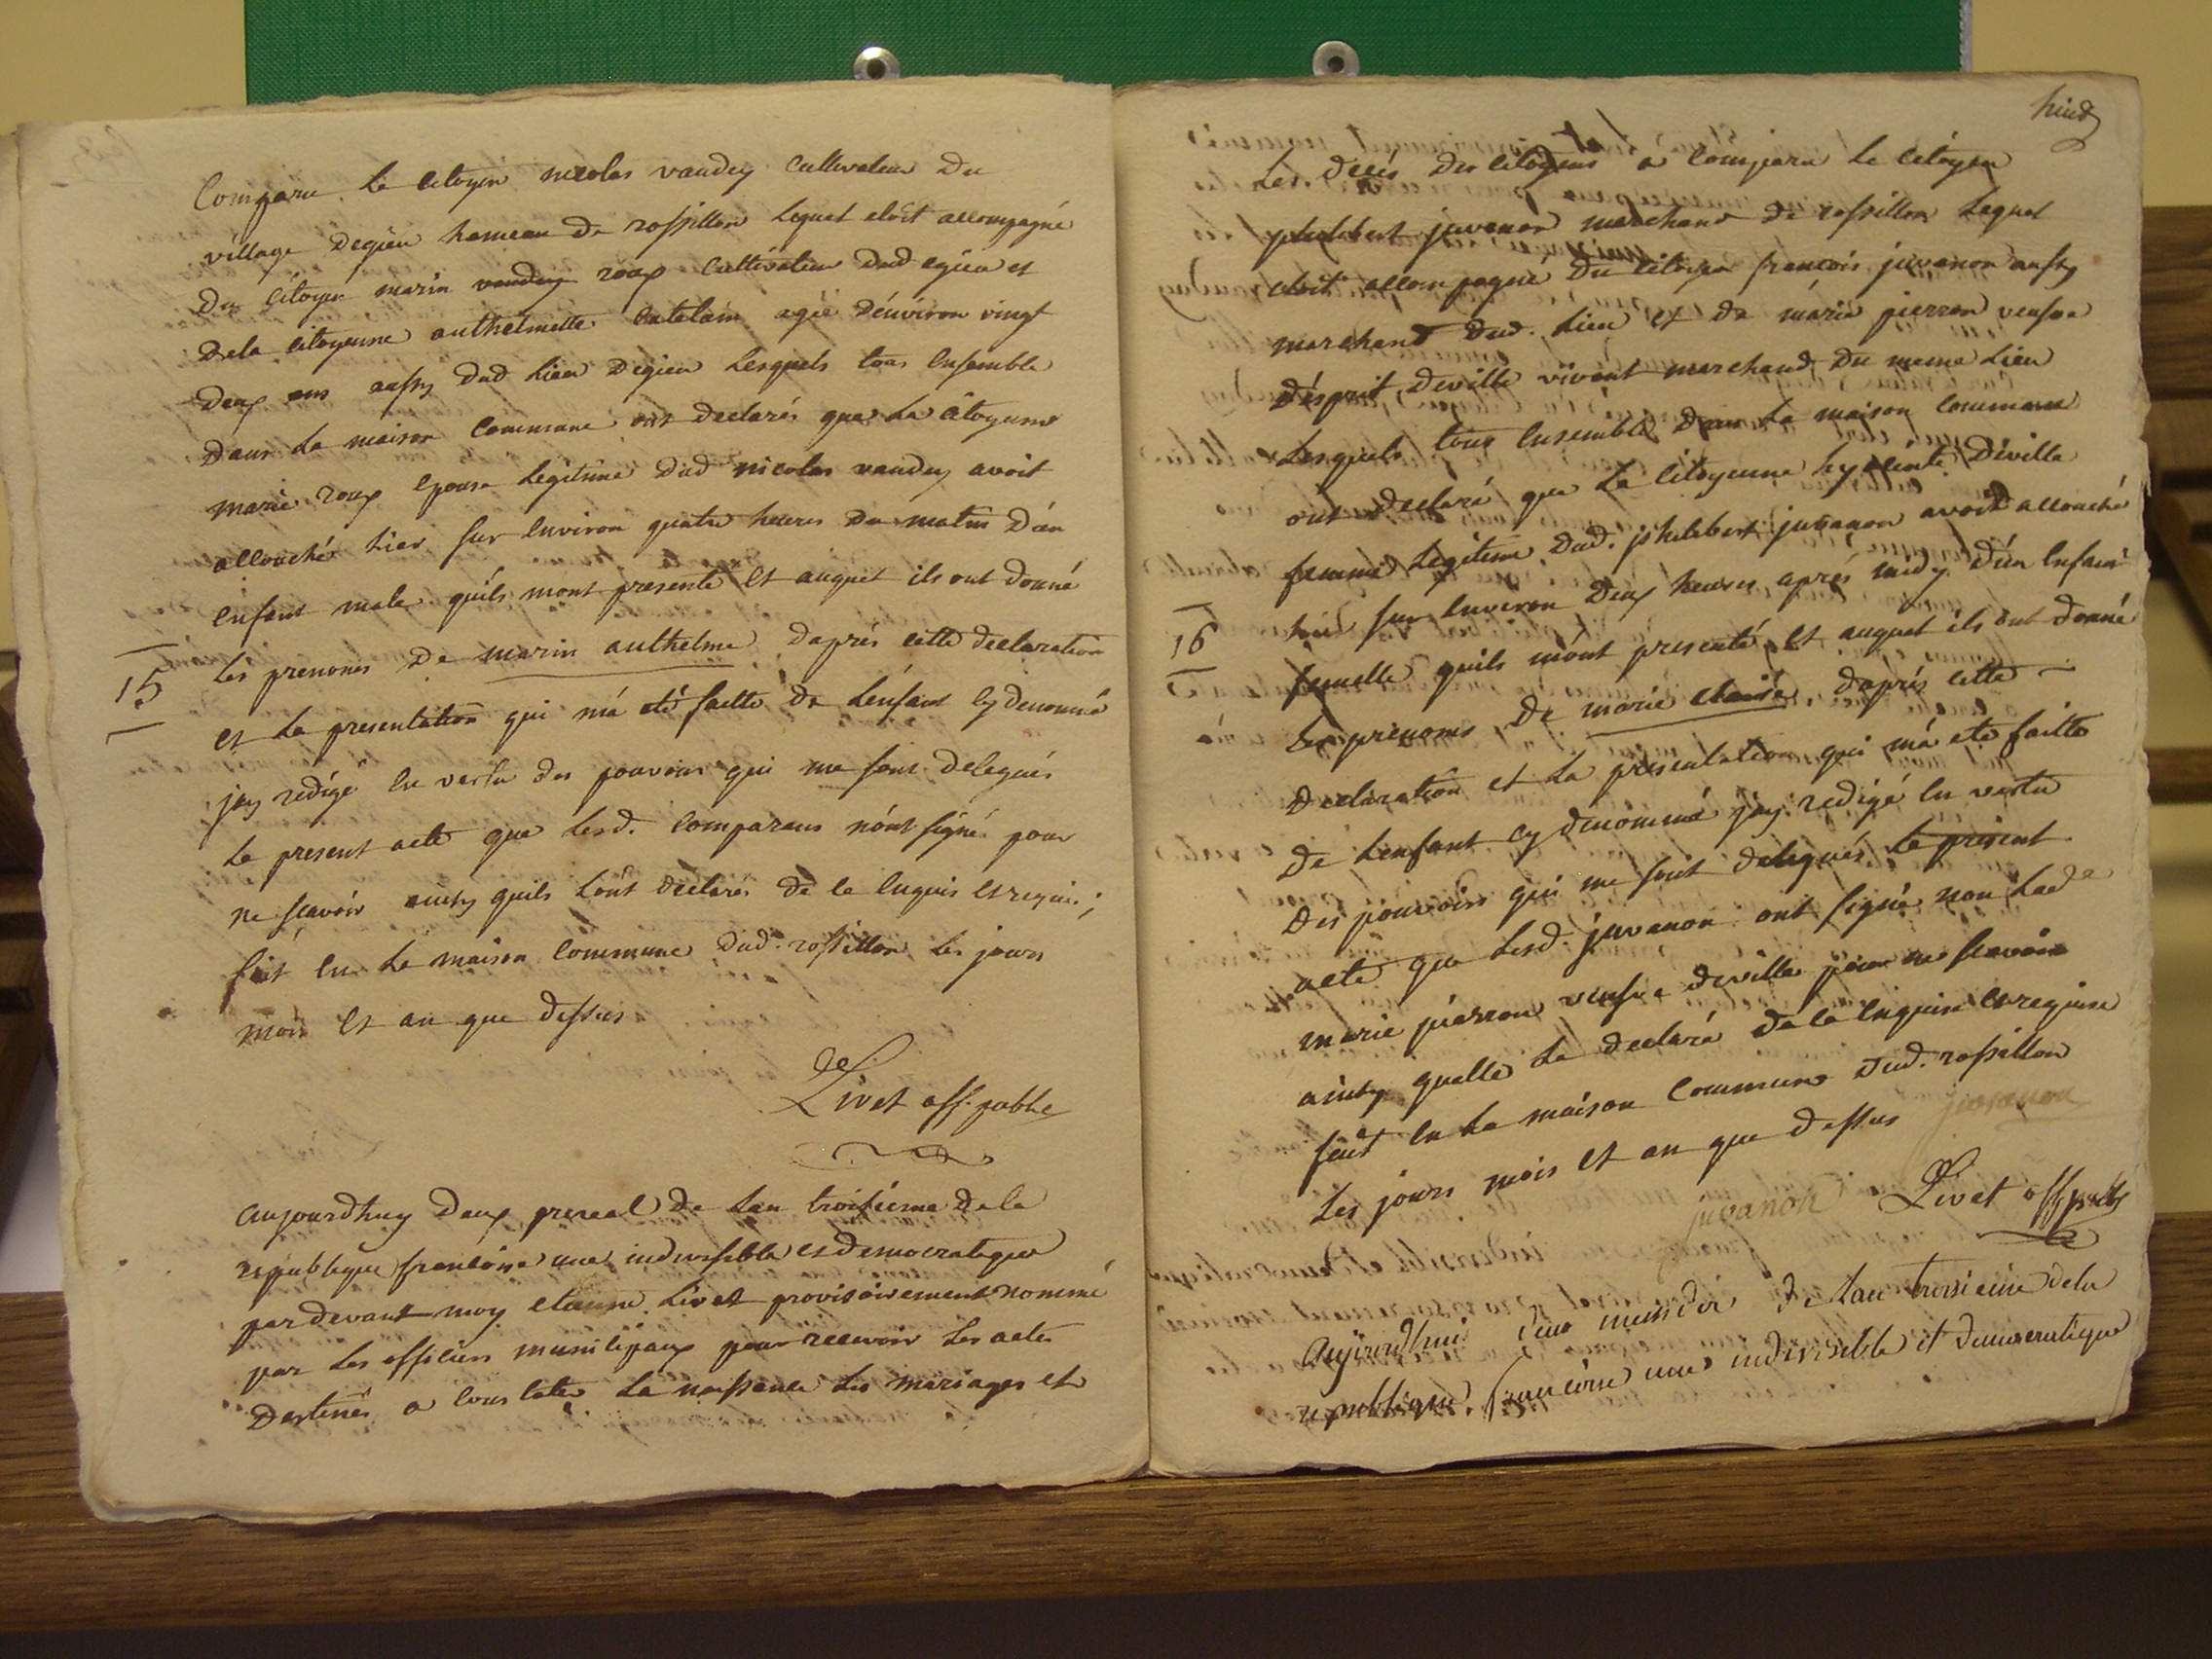 Comparu le citoyen nicolas vaudey cultivateur du
village degieu hameau de rossillon lequel etoit accompagné
du citoyen marin vaudey roux cultivateur dud egieu et
dela citoyenne anthelmette catelain agée d'énviron vingt
deux ans aussy dud lieu degieu lesquels tous ensemble
dans la maison commune ont declarés que la citoyenne
marie roux epouse legitime dud nicolas vaudey avoit
accouché hier sur environ quatre heures du matin d'un
enfant male quils mont presenté et auquel ils ont donné
15
les prenoms de marin anthelme daprés cette declaration
et la presentation qui má eté faitte de lénfant cy denommé
jay redigé en vertu des pouvoirs qui me sont delegués
le present acte que lesd. comparans nónt signé pour
ne scavoir ainsy quils lont declarés de ce enquis et requis;
fait en la maison commune dud. rossillon les jours
mois et an que dessus
Livet off. public
aujourdhuy deux prereal de lan troisieme de la
republique francoise une indivisible et democratique
pardevant moy etienne Livet provisoirement nommé
par les officiers municipaux pour recevoir les actes
destinés a constater la naissance les mariages et
huit
les decés des citoyens a comparu le citoyen
philibert juvanon marchand de rossillon lequel
etoit accompagné du citoyen francois juvanon aussy
marchand dud. lieu et de marie pierron veufve
désprit deville vivant marchand du meme lieu
lesquels tous ensemble dans la maison commune
ont declaré que la citoyenne hyacinte déville
femme legitime dud. philibert juvanon avoit accouché
hier sur environ deux heures aprés midy d'un enfant
16
femelle quils mónt presenté et auquel ils ont donné
les prenoms de marie claire daprés cette
declaration et la presentation qui má eté faitte
de lenfant cy denommé jay redigé en vertu
des pouvoirs qui me sont delegués le present
acte que lesd. juvanon ont signé non lade
marie pierron veufve deville pour ne scavoir
ainsy quelle la declaré de ce enquise et requise
fait en la maison commune dud. rossillon
les jours mois et an que dessus juvanon
juvanon Livet off public
Aujourd'hui deux messidor de lan troisieme dela
republique francoise une indivisible et democratique